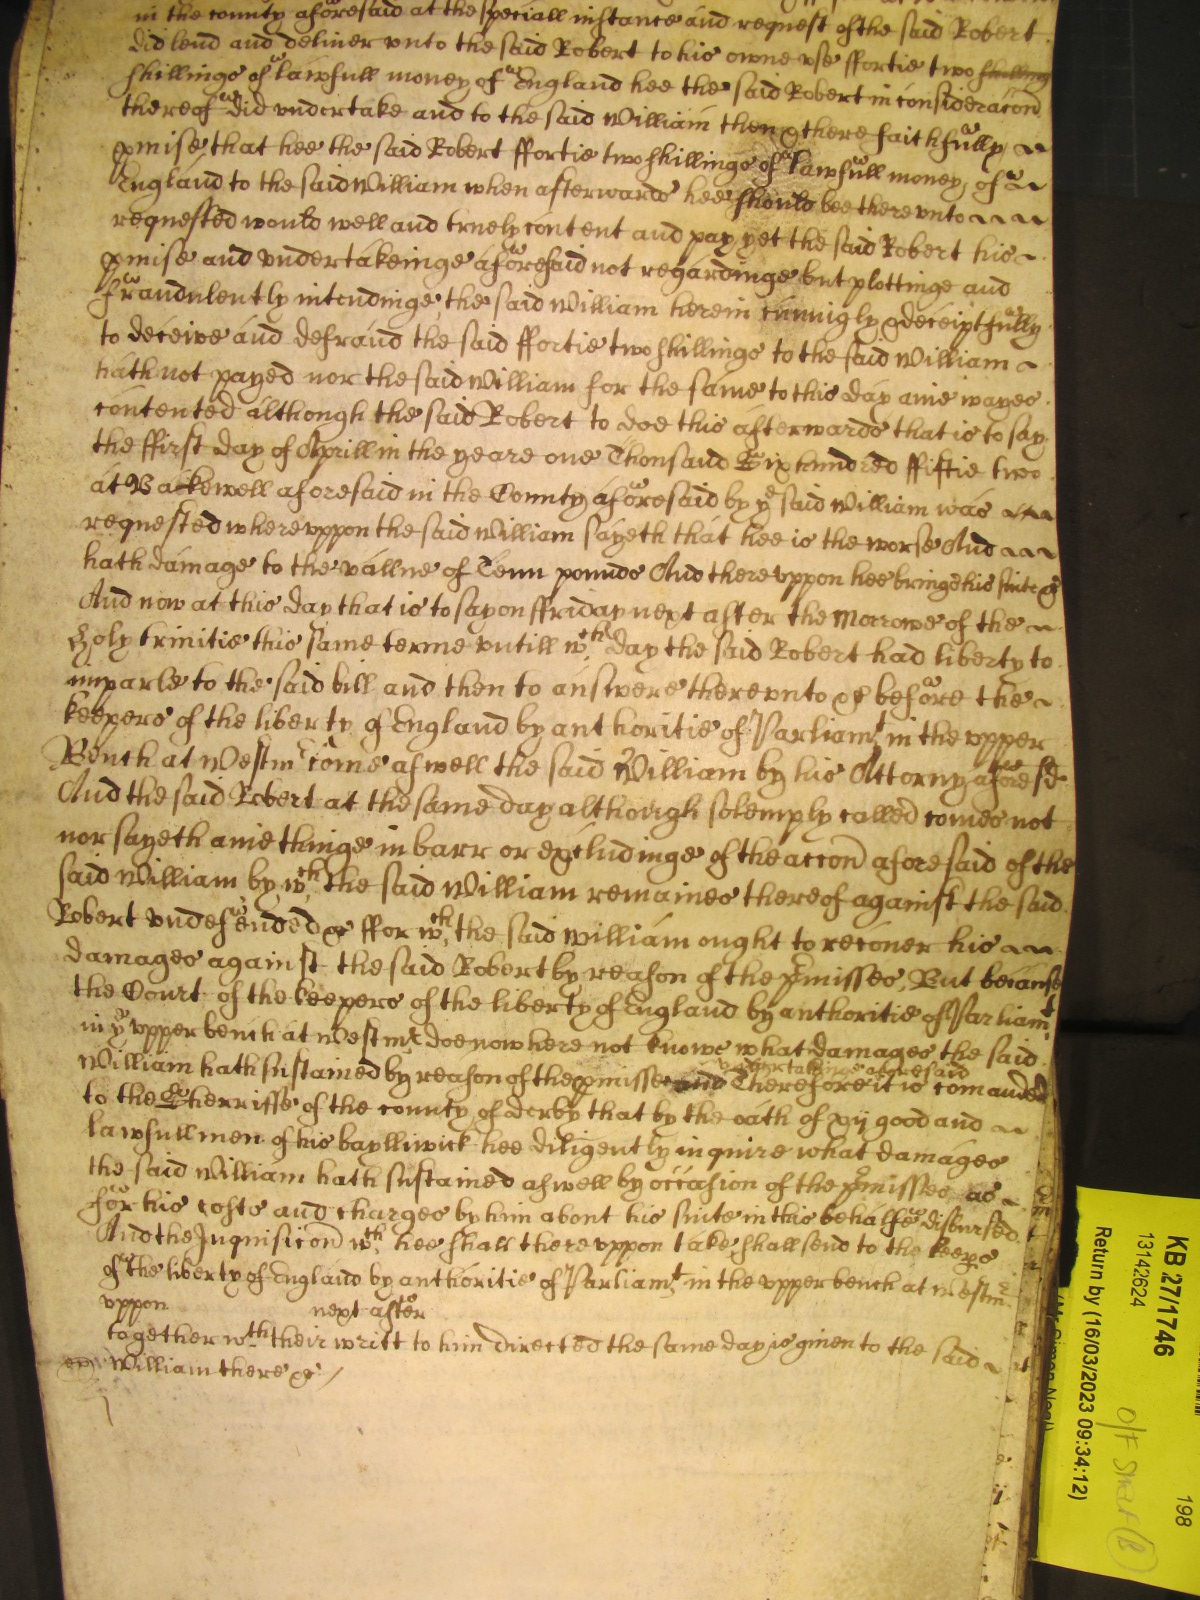 in the county aforesaid at the speciall instance and request of the said Robert
did lend and deliuer vnto the said Robert to his owne vse ffortie two shilling
shillings of lawfull money of England hee the said Robert in consideracon
thereof did vndertake and to the said William then & there faithfully
pmise that hee the said Robert ffortie two shillings of lawfull money of
England to the said William when afterwards hee should bee therevnto
requested would well and truely content and pay yet the said Robert his
pmise and vndertakeinge aforesaid not regardinge but plottinge and
fraudulently intendinge the said William herein cunnigly & deceiptfully
to deceive and defraud the said ffortie two shillings to the said William
hath not payed nor the said William for the same to this day anie wayes
contented although the said Robert to doe this afterwards that is to say
the ffirst day of Aprill in the yeare one Thousand Six hundred ffiftie two
at Backewell aforesaid in the County aforesaid by ye said William was
requested wherevppon the said William sayeth that hee is the worse And
hath damage to the vallue of Tenn pounds And therevppon hee brings his suite &
And now at this day that is to say on ffriday next after the Morrowe of the
Holy trinitie this same terme vntill wth day the said Robert had liberty to
imparle to the said bill and then to answere therevnto & before the
keepers of the liberty of England by authoritie of Parliamt in the vpper
Bench at Westmr come aswell the said William by his Attorny aforesd
And the said Robert at the same day although solemply called comes not
nor sayeth anie thinge in barr or excludinge of the accon aforesaid of the
said William by wch the said William remaines thereof against the said
Robert vndefended & ffor wch the said William ought to recouer his
damages against the said Robert by reason of the pmisses, But because
the Court of the keepers of the liberty of England by authoritie of Parliamt
in ye vpper bench at Westmr doe now here not knowe what damages the said
William hath sustained by reason of the pmisses and vndertakinge aforesaid Therefore it is comanded
to the Sherriffe of the county of derby that by the oath of xij good and
lawfull men of his baylliwick hee diligently inquire what damages
the said William hath sustained aswell by occasion of the pmisses as
for his costs and charges by him about his suite in this behalfe disbursed
And the Inquisicon wch hee shall therevppon take shall send to the keeps
of the liberty of England by authoritie of Parliamt in the vpper bench at Westmr
vppon next after
together wth their writt to him directed the same day is giuen to the said
William there &
KB 27/1746
13142624
Return by (16/03/2023 09:34:12)
198